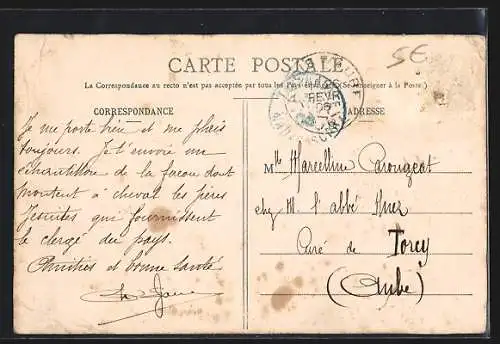 5€
CARTE POSTALE
La Correspondance au recto n'est pas acceptée par tous les Pays étrangers (Se renseigner à la Poste)
CORRESPONDANCE
ADRESSE
FEVR
Je me porte bien et me plais
toujours. Je t'envoie un
échantillon de la façon dont
montent à cheval les pères
Jésuites qui fournissent
le clergé du pays.
Amitiés et bonne santé
Mlle Marcelline Carougeat
chez M. l'abbé
Curé de Torcy
(Aube)